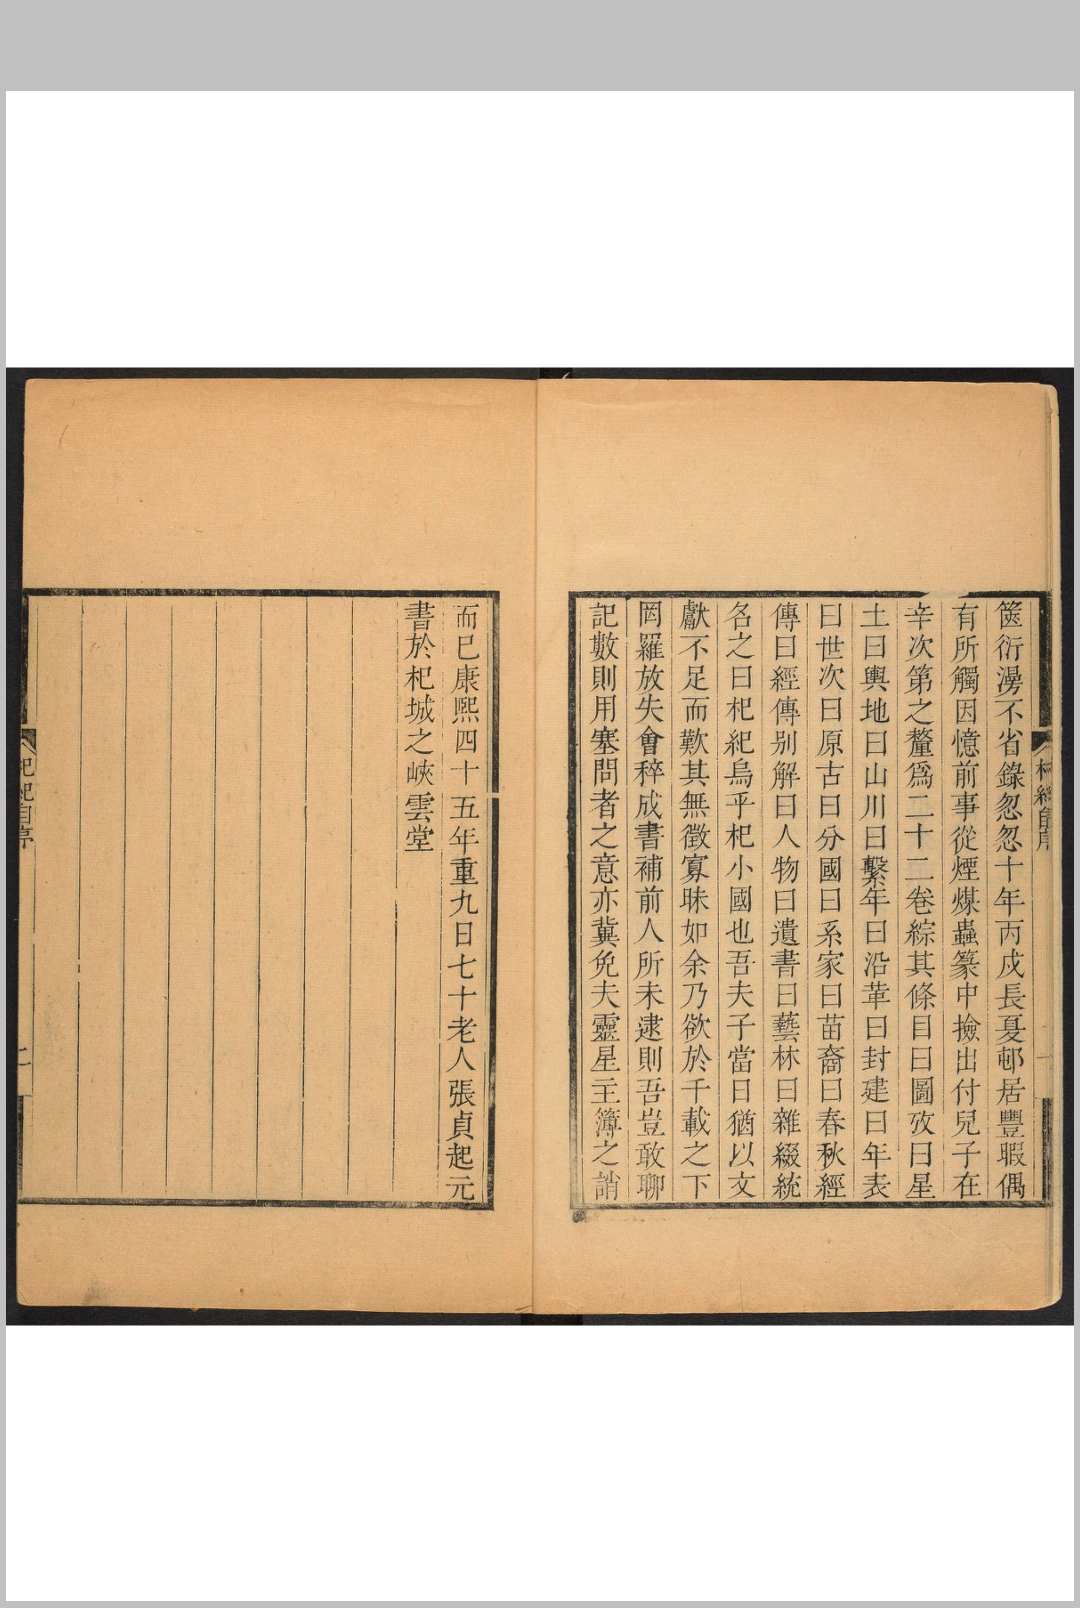 篋衍漫不省錄忽忽十年丙戍長夏邨居豐暇偶
有所觸因憶前事從煙煤蟲篆中撿出付兒子在
辛次第之釐爲二十二卷綜其條目曰圖攷曰星
土曰輿地曰山川曰繫年曰沿革曰封建曰年表
曰世次曰原古曰分國曰系家曰苗裔曰春秋經
傳曰經傳别解曰人物曰遺書曰藝林曰雜綴統
名之曰杞紀烏乎杞小國也吾夫子當日猶以文
獻不足而歎其無徵寡昧如余乃欲於千載之下
罔羅放失會稡成書補前人所未逮則吾豈敢聊
記數則用塞問者之意亦冀免夫靈星主簿之誚
而已康熙四十五年重九日七十老人張貞起元
書於杞城之峽雲堂
杞紀自序
二